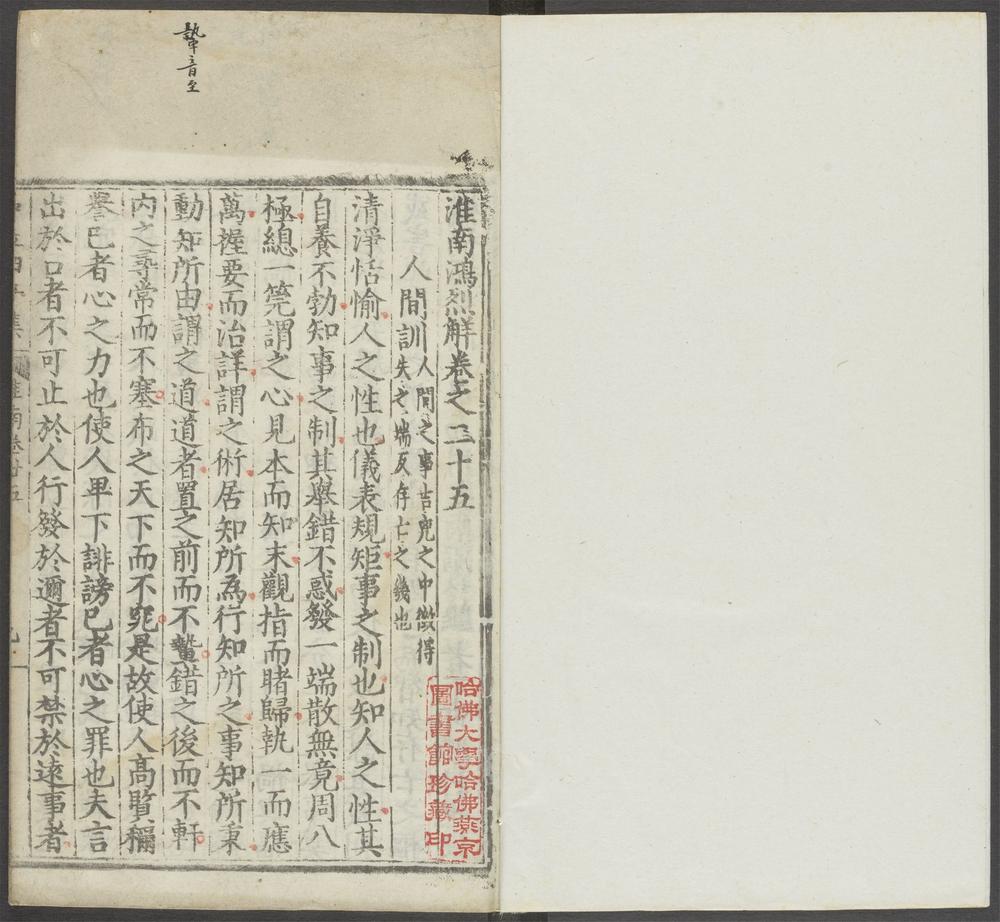 淮南鴻烈解卷之二十五
人間訓
人間之事吉㐫之中徵得
失之端反存亡之幾也
清淨恬愉人之性也儀表規矩事之制也知人之性其
自養不勃知事之制其舉錯不惑發一端散無竟周八
極總一筦謂之心見本而知末觀指而睹歸執一而應
萬握要而治詳謂之術居知所為行知所之事知所秉
動知所由謂之道道者置之前而不𨎌錯之後而不軒
內之尋常而不塞布之天下而不窕是故使人高賢稱
譽己者心之力也使人卑下誹謗己者心之罪也夫言
出於口者不可止於人行發於邇者不可禁於遠事者
淮南卷廿五
摯音至
哈佛大學哈佛燕京
圖書館珍藏印